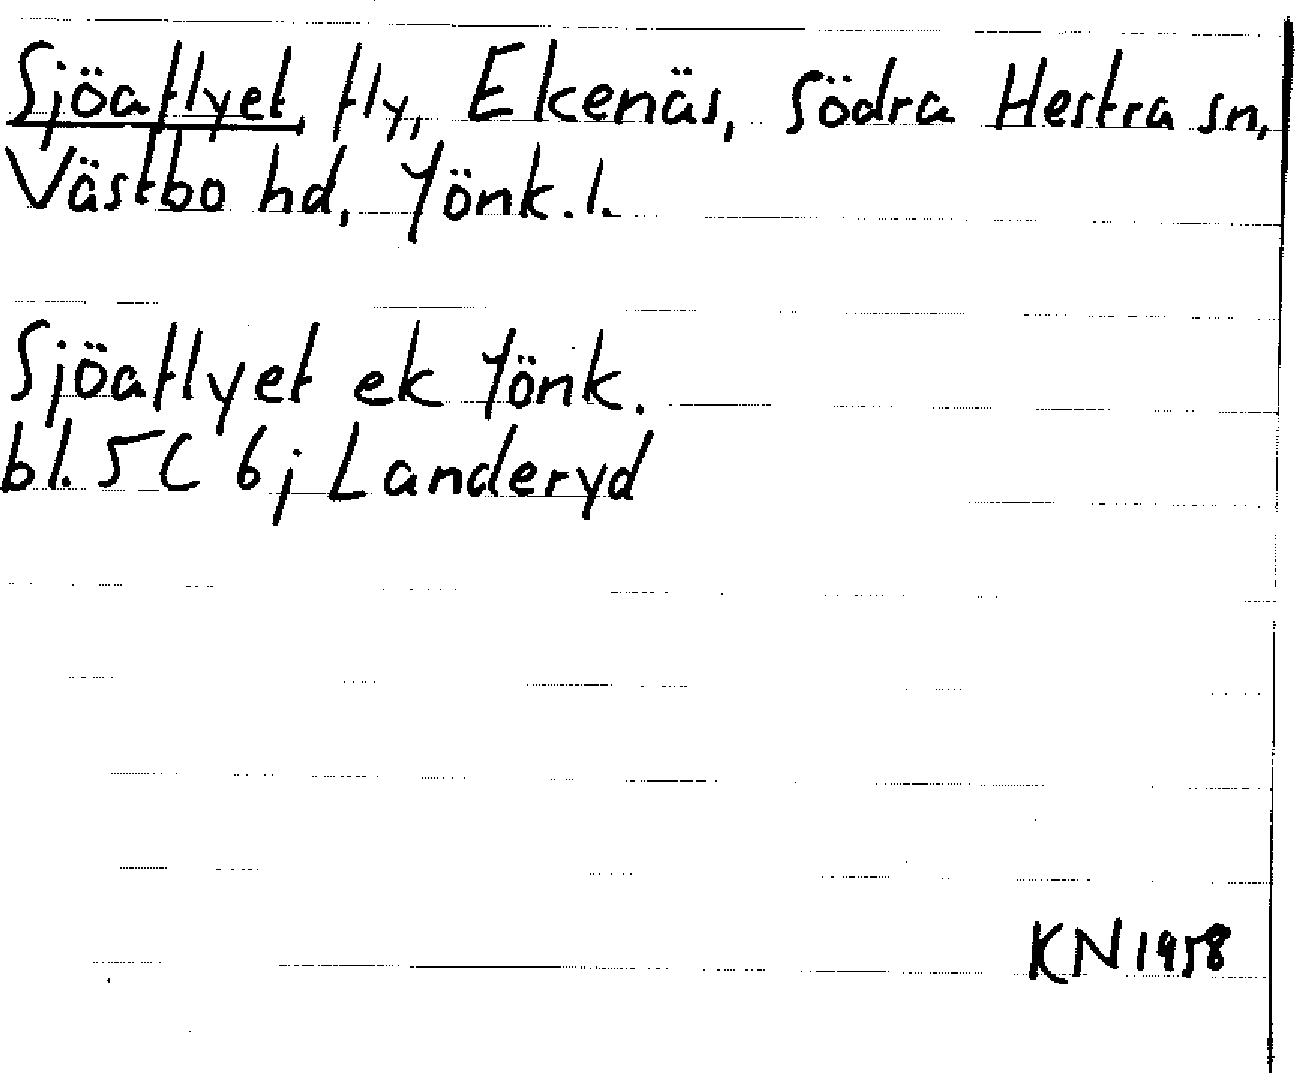 Sjöaflyet, fly, Ekenäs, Södra Hestra sn,
Västbo hd, Jönk. l.
Sjöaflyet ek Jönk.
bl. 5C 6j Landeryd
KN 1958